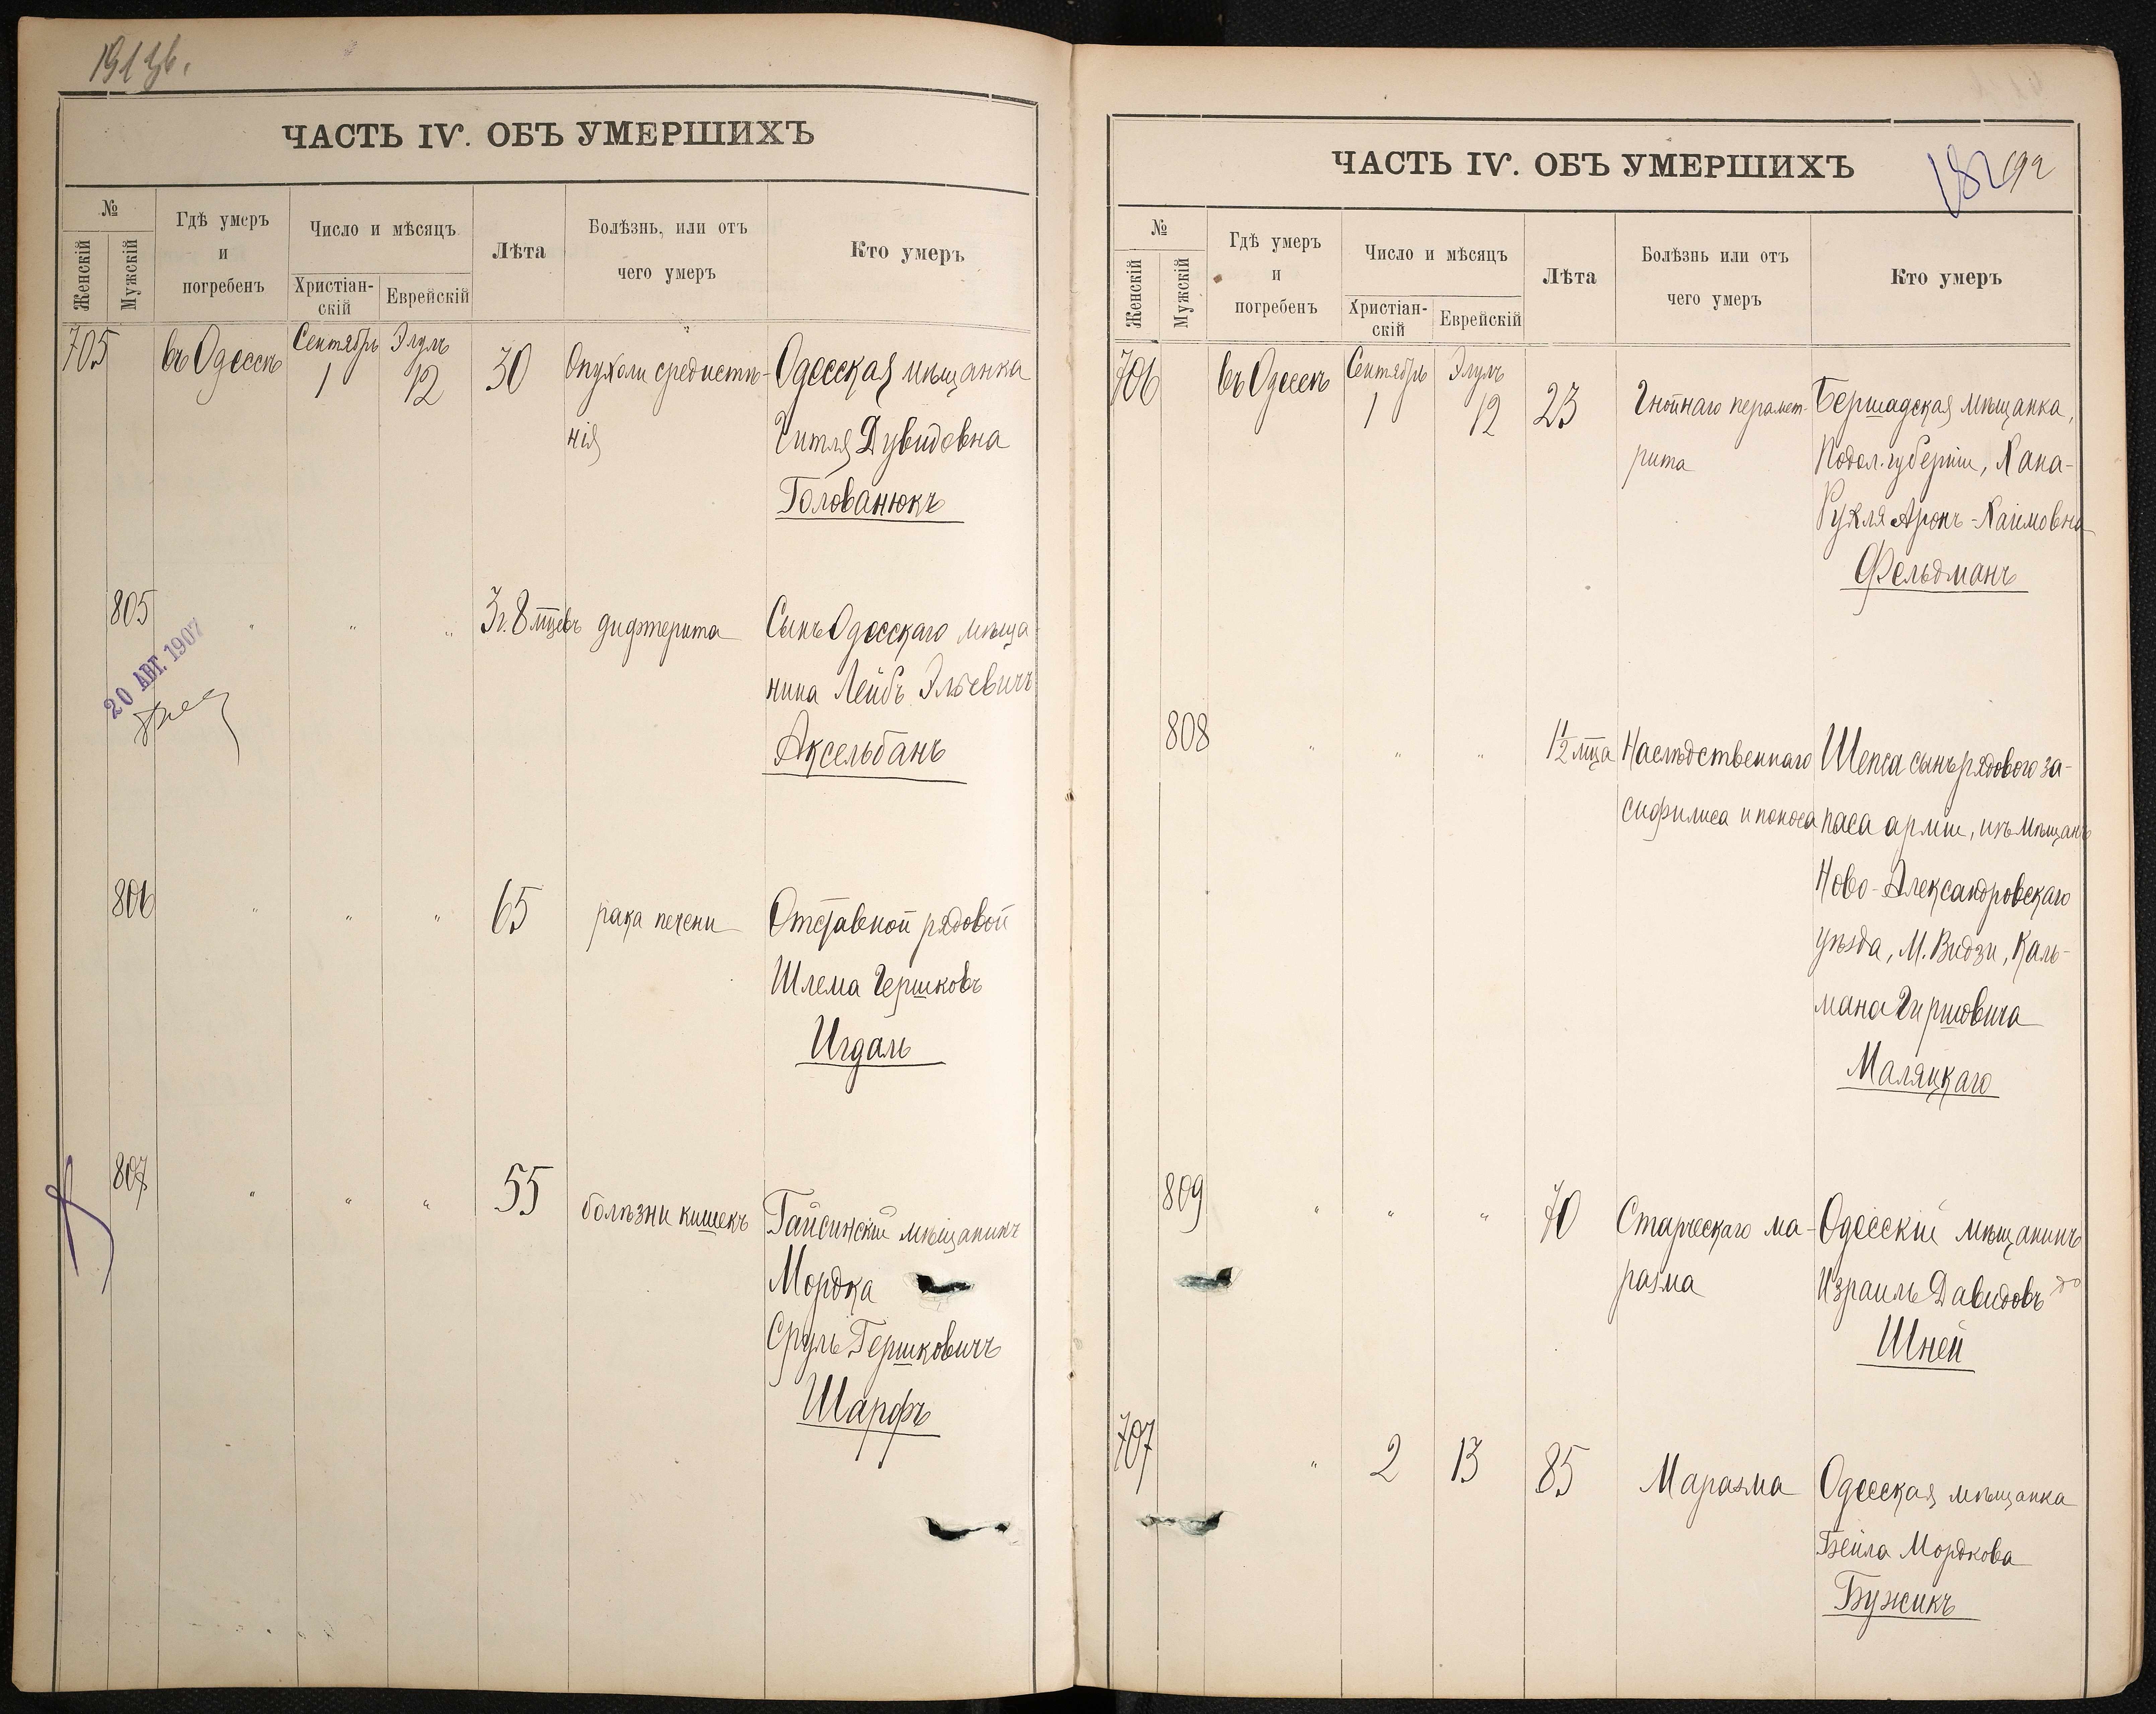 ЧАСТЬ IV. ОБЪ УМЕРШИХЪ
№
Женскій
Мужскій
Гдѣ умеръ
и
погребенъ
Число и мѣсяцъ
Христіан-
скій
Еврейскій
Лѣта
Болѣзнь, или отъ
чего умеръ
Кто умеръ
705
въ Одессѣ
Сентябрь
1
Элулъ
12
30
Опухоли средистѣ-
нія
Одесская мѣщанка
Гитля Дувидовна
Голованюкъ
805
20 АВГ. 1907
" " "
3 г. 8 мцевъ
дифтерита
Сынъ Одесскаго мѣща
нина Лейбъ Эльевичъ
Аксельбанъ
806
" " "
65
рака печени
Отставной рядовой
Шлема Гершковъ
Игдалъ
807
" " "
55
болѣзни кишекъ
Гайсинскій мѣщанинъ
Мордка
Сруль Гершковичъ
Шарфъ
ЧАСТЬ IV. ОБЪ УМЕРШИХЪ
182 192
№
Женскій
Мужскій
Гдѣ умеръ
и
погребенъ
Число и мѣсяцъ
Христіан-
скій
Еврейскій
Лѣта
Болѣзнь или отъ
чего умеръ
Кто умеръ
706
въ Одессѣ
Сентябрь
1
Элулъ
12
23
Гнойнаго перамет-
рита
Бершадская мѣщанка,
Подол. губерніи, Хана-
Рухля Аронъ-Хаимовна
Фельдманъ
808
" " "
1 1/2 мца
Наслѣдственнаго
сифилиса и поноса
Шепса сынъ рядового за-
паса арміи, изъ мѣщанъ
Ново-Александровскаго
уѣзда, М. Видзи, Каль-
мана Гиршовича
Маляцкаго
809
" " "
70
Старческаго ма-
разма
Одесскій мѣщанинъ
Израиль Давидовъ
Шней
707
"
2
13
85
Маразма
Одесская мѣщанка
Бейла Мордкова
Бужикъ